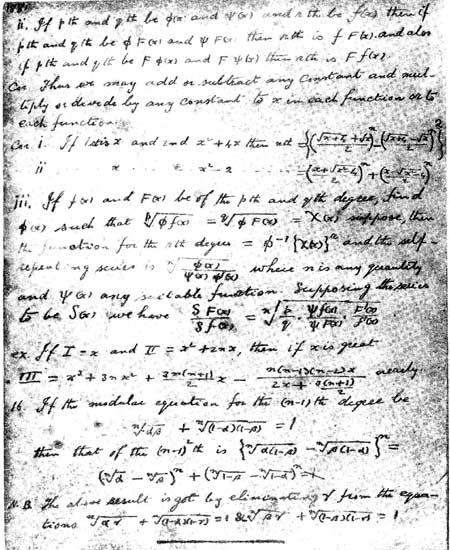 ii. If pth and qth be φ(x) and ψ(x) and rth be f(x) then if
pth and qth be φ F(x) and ψ F(x) then rth is f F(x). and also
if pth and qth be F φ(x) and F ψ(x) then rth is F f(x).
Cor. Thus we may add or subtract any constant and mul-
tiply or divide by any constant to x in each function or to
each function.
Cor. i. If 1st is x and 2nd x² + 4x then nth =
ii x x² - 2
iii. If f(x) and F(x) be of the pth and qth degree, find
φ(x) such that = = χ(x) suppose, then
the function for the nth degree = φ⁻¹{χ(x)}ⁿ and the self-
repeating series is where n is any quantity
and ψ(x) any suitable function. Supposing the series
to be S(x) we have S F(x) / S f(x) =
ex. If I = x and II = x² + 2nx, then if x is great
III = x³ + 3nx² + 3n(n+1)/2 x - nearly.
16. If the modular equation for the (n-1)th degree be
ⁿ√αβ + ⁿ√(1-α)(1-β) = 1
then that of the (n-1)²th is {ⁿ√α(1-β) - ⁿ√β(1-α)}ⁿ =
(ⁿ√α - ⁿ√β)ⁿ + (ⁿ√1-β - ⁿ√1-α)ⁿ
N.B. The above result is got by eliminating γ from the equa-
tions ⁿ√αγ + ⁿ√(1-α)(1-γ) = 1 & ⁿ√βγ + ⁿ√(1-β)(1-γ) = 1